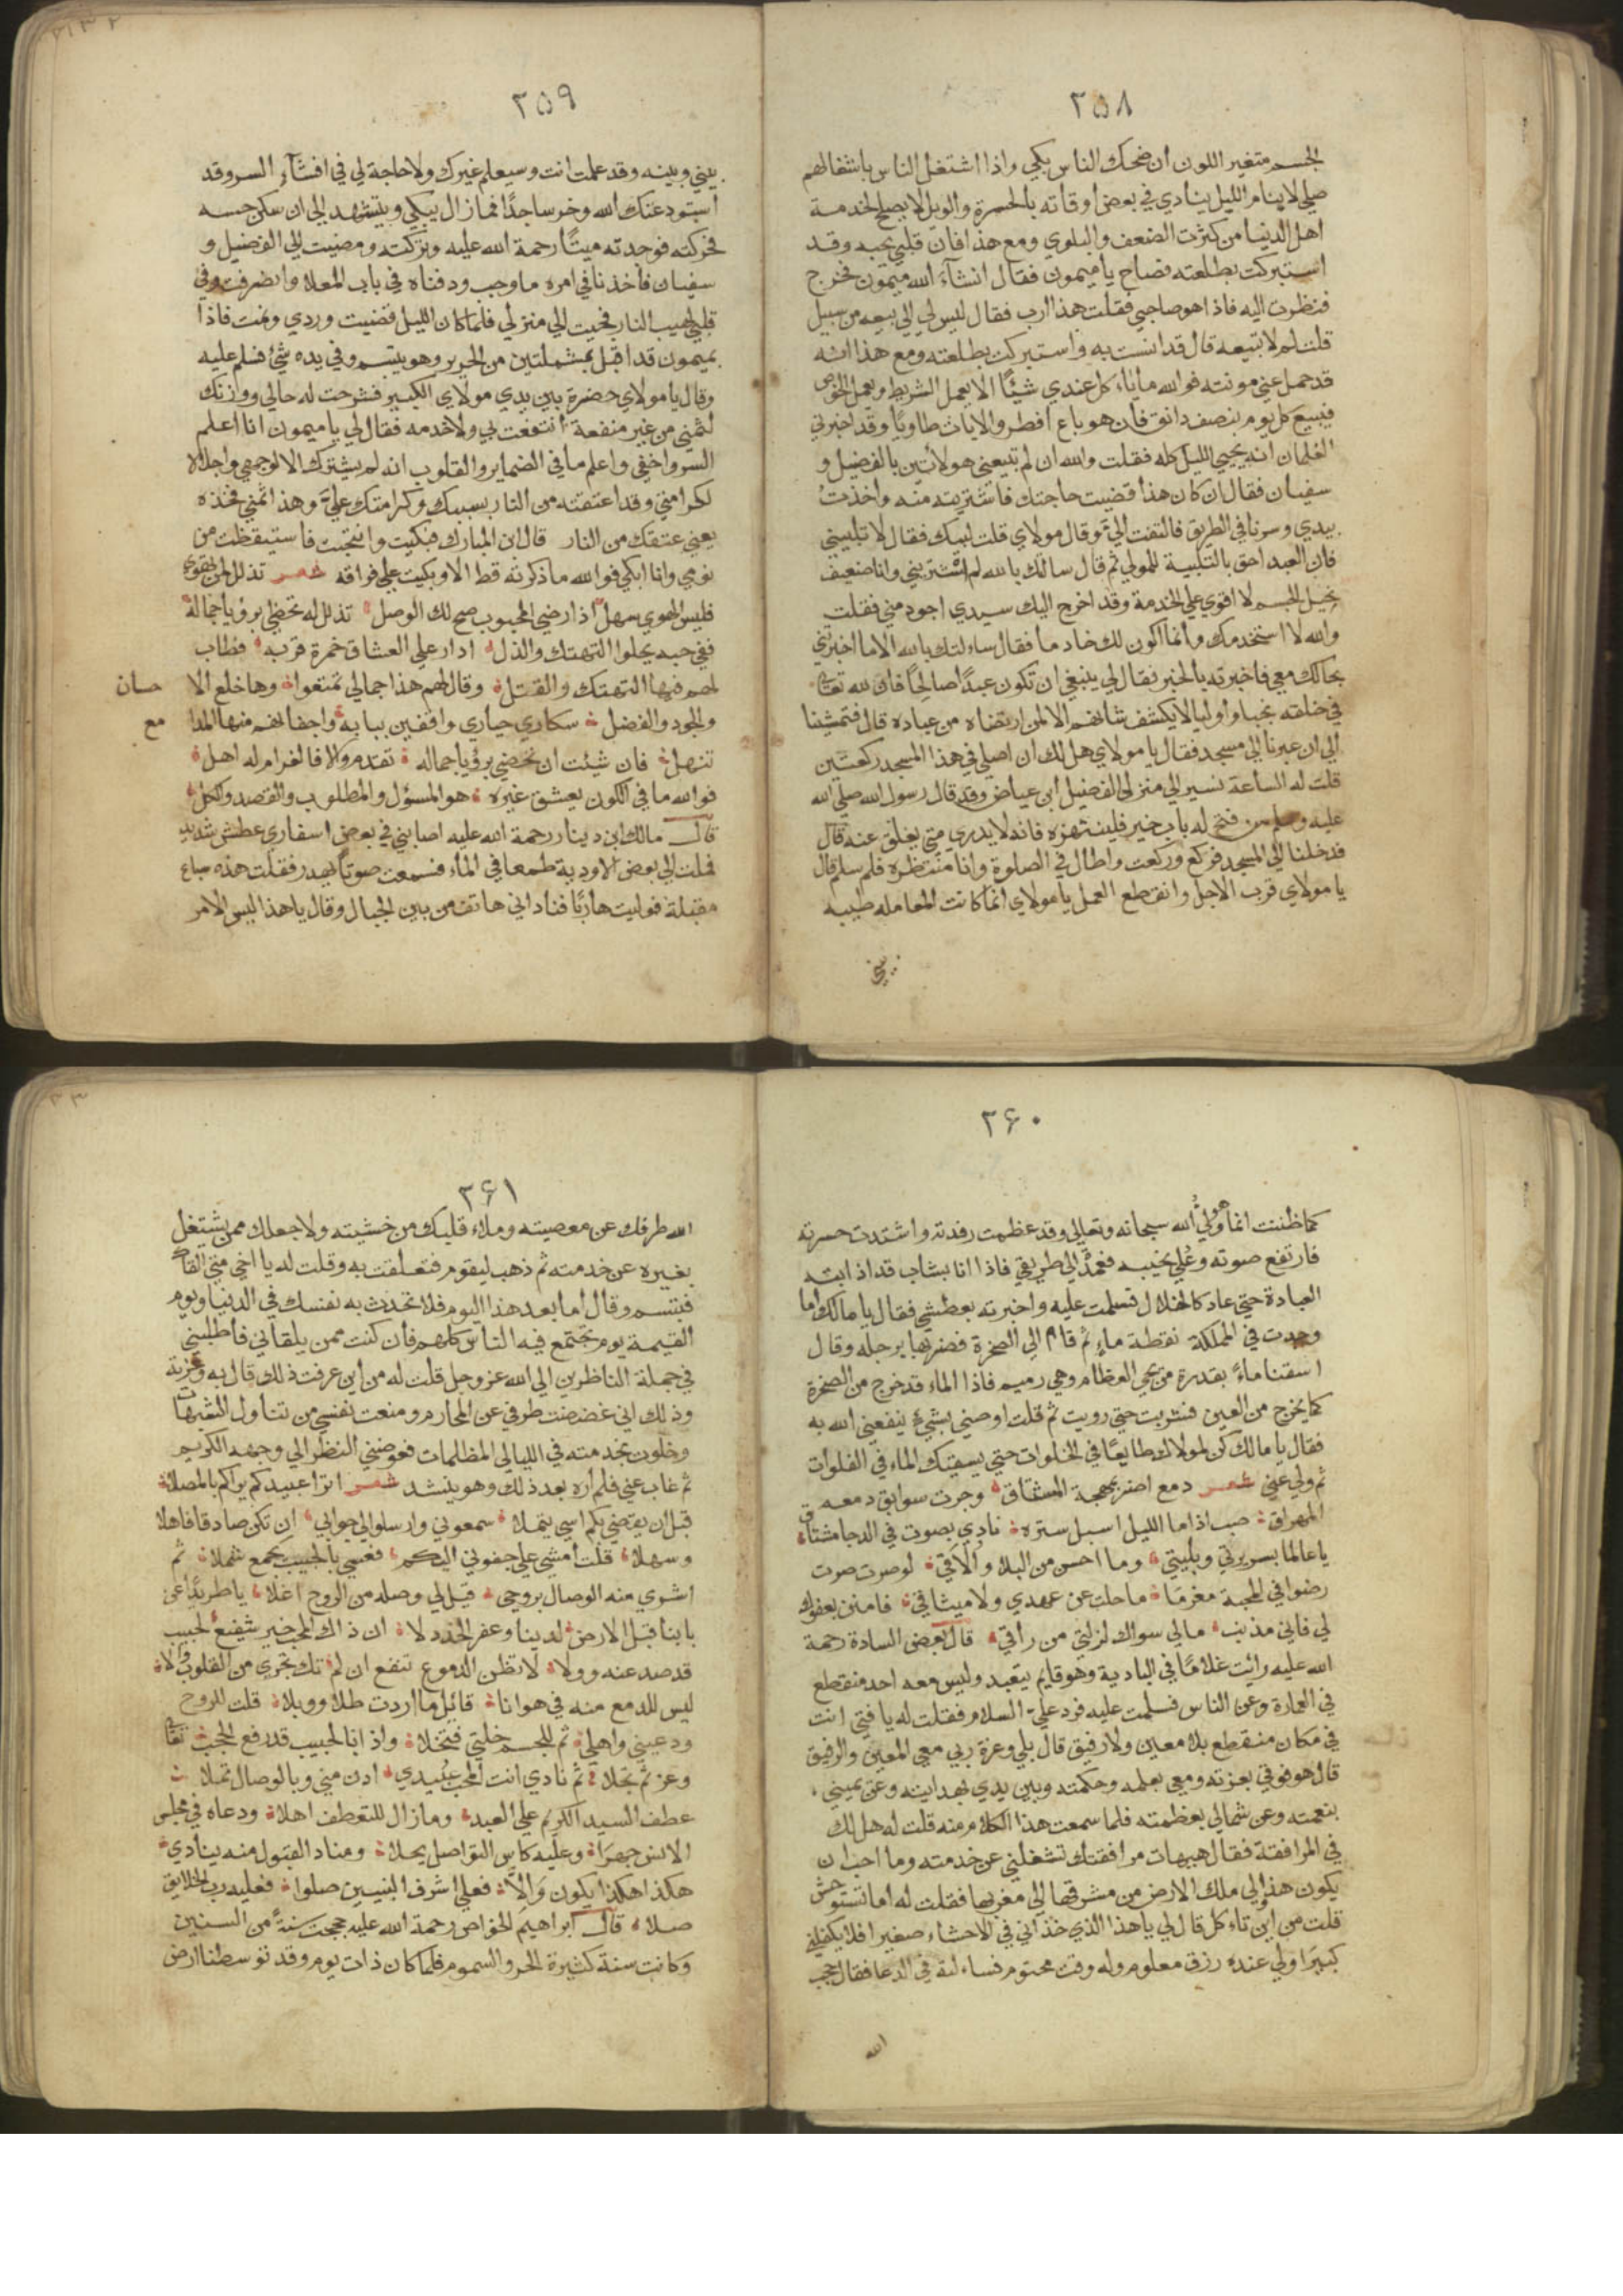 ٢٥٨
الجسم متغير اللون ان ضحك الناس يبكي واذا اشتغل الناس باشغالهم
صلي لاينام الليل ينادي في بعض أوقاته بالحسرة والويل لايصلح لخدمة
اهل الدنيا من كثرت الضعف والبلوي ومع هذا فان قلبي يحبه وقد
استبركت بطلعته فصاح يا ميمون فقال انشآء الله ميمون فخرج
فنظرت اليه فاذا هو صاحبي فقلت هذا ارب فقال ليس لي الي بيعه من سبيل
قلت لم لا تبيعه قال قد انست به واستبركت بطلعته ومع هذا انه
قد حمل عني مونته فوالله ما ياء كل عندي شيئًا الا يعمل الشريط ويعمل الخوص
فيبيع كل يوم بنصف دانق فان هو باع افطر والا بات طاويًا وقد اخبرني
الغلمان انه يحيي الليل كله فقلت والله ان لم تبيعني هو لاتين بالفضيل و
سفيان فقال ان كان هذا قضيت حاجتك فاشتريته منه واخذت
بيدي وسرنا في الطريق فالتفت الي وقال مولاي قلت لبيك فقال لا تلبيني
فان العبد احق بالتلبية للمولي ثم قال سالك بالله لم اشتريتني وانا ضعيف
نحيل الجسم لا اقوي علي الخدمة وقد اخرج اليك سيدي اجود مني فقلت
والله لا استخدمك وأنما اكون لك خادما فقال ساء لتك بالله الا ما اخبرتني
بحالك معي فاخبرته بالخبر فقال لي ينبغي ان تكون عبدًا صالحًا فان لله تعالي
في خلقه نجبا واوليا لا يكشف شانهم الا لمن ارتضاه من عباده قال فتمشينا
الي ان عبرنا الي مسجد فقال يا مولاي هل لك ان اصلي في هذا المسجد ركعتين
قلت له الساعة نسير الي منزل الفضيل ابن عياض وقد قال رسول الله صلي الله
عليه وسلم من فتح له باب خير فلينتهزه فانه لا يدري متي يغلق عنه قال
فدخلنا الي المسجد فركع وركعت واطال في الصلوة وانا منتظره فلم سلم قال
يا مولاي قرب الاجل وانقطع العمل يا مولاي انما كانت المعامله طيبه
بيني
٢٥٩
بيني وبينه وقد علمت انت وسيعلم غيرك ولا حاجة لي في افشآء السر وقد
استودعتك الله وخر ساجدًا فما زال يبكي ويتشهد الي ان سكن حسه
فحركته فوجدته ميتًا رحمة الله عليه وتركته ومضيت الي الفضيل و
سفيان فأخذنا في امره ما وجب ودفناه في باب المعلا وانصرفت وفي
قلبي لهيب النار فجيت الي منزلي فلما كان الليل قضيت وردي ونمت فاذا
بميمون قد اقبل بمشملتين من الحرير وهو يبتسم وفي يده شئ فسلم عليه
وقال يا مولاي حضرة بين يدي مولاي الكبير فشرحت له حالي ووزنك
لثمني من غير منفعة انتفعت لي ولا خدمه فقال لي يا ميمون انا اعلم
السر واخفي واعلم ما في الضماير والقلوب انه لم يشترك الا لوجهي واجلالا
لكرامتي وقد اعتقته من النار بسببك وكرامتك علي وهذا ثمني فخذه
يعني عتقك من النار قال ابن المبارك فبكيت وانتحبت فاستيقظت من
نومي وانا ابكي فوالله ما ذكرته قط الا وبكيت علي فراقه شعر تذلل لمن تهوي
فليس الهوي سهل اذا رضي المحبوب صح لك الوصل تذلل له تحظي برؤيا جماله
ففي حبه يحلوا التهتك والذل ادار علي العشاق خمرة قربه فطاب
لهم فيها التهتك والقتل وقال لهم هذا جمالي تمتعوا وها خلع الا
حسان
والجود والفضل سكاري حياري واقفين ببابه واجفانهم منها المدا
مع
تنهل فان شيئت ان تحضي برؤيا جماله تقدم والا فالغرام له اهل
فوالله ما في الكون يعشق غيره هو المسؤل والمطلوب والقصد والكل
قال مالك ابن دينار رحمة الله عليه اصابني في بعض اسفاري عطش شديد
فملت الي بعض الاودية طمعا في الماء فسمعت صوتًا يهدر فقلت هذه سباع
مقبلة فوليت هاربًا فناداني هاتف من بين الجبال وقال يا هذا ليس الامر
٢٦٠
كما ظننت انما هو ولي الله سبحانه وتعالي وقد عظمت رفدته واشتدت حسرته
فارتفع صوته وعلي نحيبه فعمدت الي طريقي فاذا انا بشاب قد اذابته
العبادة حتي عاد كالخلال فسلمت عليه واخبرته بعطشي فقال يا مالك اما
وجدت في المملكة نقطة ماء ثم قام الي الصخرة فضربها برجله وقال
اسقنا ماءً بقدرة من يحي العظام وهي رميم فاذا الماء قد خرج من الصخرة
كما يخرج من العين فشربت حتي رويت ثم قلت اوصني بشيء ينفعني الله به
فقال يا مالك كن لمولاك طايعًا في الخلوات حتي يسقيك الماء في الفلوات
ثم ولي عني شعر دمع اضر بمهجة المشتاق وجرت سوابق دمعه
المهراق صب اذا ما الليل اسبل ستره نادي بصوت في الدجا مشتاق
يا عالما بسريرتي وبليتي وما احسن من البلاء والاقي لو صرت صوت
رضوا في المحبة مغرمًا ما حلت عن عهدي ولا ميثاقي فامنن بعفوك
لي فاني مذنب مالي سواك لزلتي من راقي قال بعض السادة رحمة
الله عليه رائت غلامًا في البادية وهو قايم يتعبد وليس معه احد منقطع
في العمارة وعن الناس فسلمت عليه فرد علي السلام فقلت له يا فتي انت
في مكان منقطع بلا معين ولا رفيق قال بلي وعزة ربي معي المعين والرفيق
قال هو فوقي بعزته ومعي بعلمه وحكمته وبين يدي بهدايته وعن يميني
بنعمته وعن شمالي بعظمته فلما سمعت هذا الكلام منه قلت له هل لك
في المرافقة فقال هيهات مرافقتك تشغلني عن خدمته وما احب ان
يكون هذا لي ملك الارض من مشرقها الي مغربها فقلت له اما تستوحش
قلت من اين تاء كل قال لي يا هذا الذي غذاني في الاحشاء صغير افلا يكفلني
كبيرًا ولي عنده رزق معلوم وله وقت محتوم فساء لته في الدعا فقال حجب
الله
٢٦١
الله طرفك عن معصيته وملاء قلبك من خشيته ولا جعلك ممن يشتغل
بغيره عن خدمته ثم ذهب ليقوم فتعلقت به وقلت له يا اخي متي القاك
فتبسم وقال اما بعد هذا اليوم فلا تحدث به نفسك في الدنيا ويوم
القيمة يوم تجتمع فيه الناس كلهم فأن كنت ممن يلقاني فأطلبني
في جملة الناظرين الي الله عز وجل قلت له من أين عرفت ذلك قال به وعزته
وذلك اني غضضت طرفي عن المحارم ومنعت نفسي من تناول الشهات
وخلوت بخدمته في الليالي المظلمات فعوضني النظر الي وجهه الكريم
ثم غاب عني فلم اره بعد ذلك وهو ينشد شعر اترا عبيدكم يراكم بالمصلا
قبل ان يقضي بكم اسي يتملا سمعوني وارسلوا لي جوابي ان تكن صادقا فاهلا
وسهلا قلت أمشي علي جفوني اليكم فعسي بالحبيب يجمع شملا ثم
اشري منه الوصال بروحي قيل لي وصله من الروح اغلا يا طريدًا عن
بابنا قبل الارض لدينا وعفر الخد ذلا ان ذاك المحب خير شفيع لحبيب
قد صد عنه وولا لا تظن الدموع تنفع ان لم تك تجري من القلوب والا
ليس للدمع منه في هوانا قائل ما اردت طلا ووبلا قلت للروح
ودعيني واهلي ثم للجسم خلتي فتخلا واذا بالحبيب قد رفع الحجب تعالي
وعز ثم تجلا ثم نادي انت المحب عبيدي ادن مني وبالوصال تملا
عطف السيد الكريم علي العبد وما زال للتعطف اهلا ودعاه في مجلس
الانس جهرًا وعليه كاس التواصل يحلا ومناد القبول منه ينادي
هكذا هكذا يكون والا فعلي اشرف النبيين صلوا فعليه رب الخلايق
صلا قال ابراهيم الخواص رحمة الله عليه حججت سنةً من السنين
وكانت سنة كثيرة الحر والسموم فلما كان ذات يوم وقد توسطنا ارض